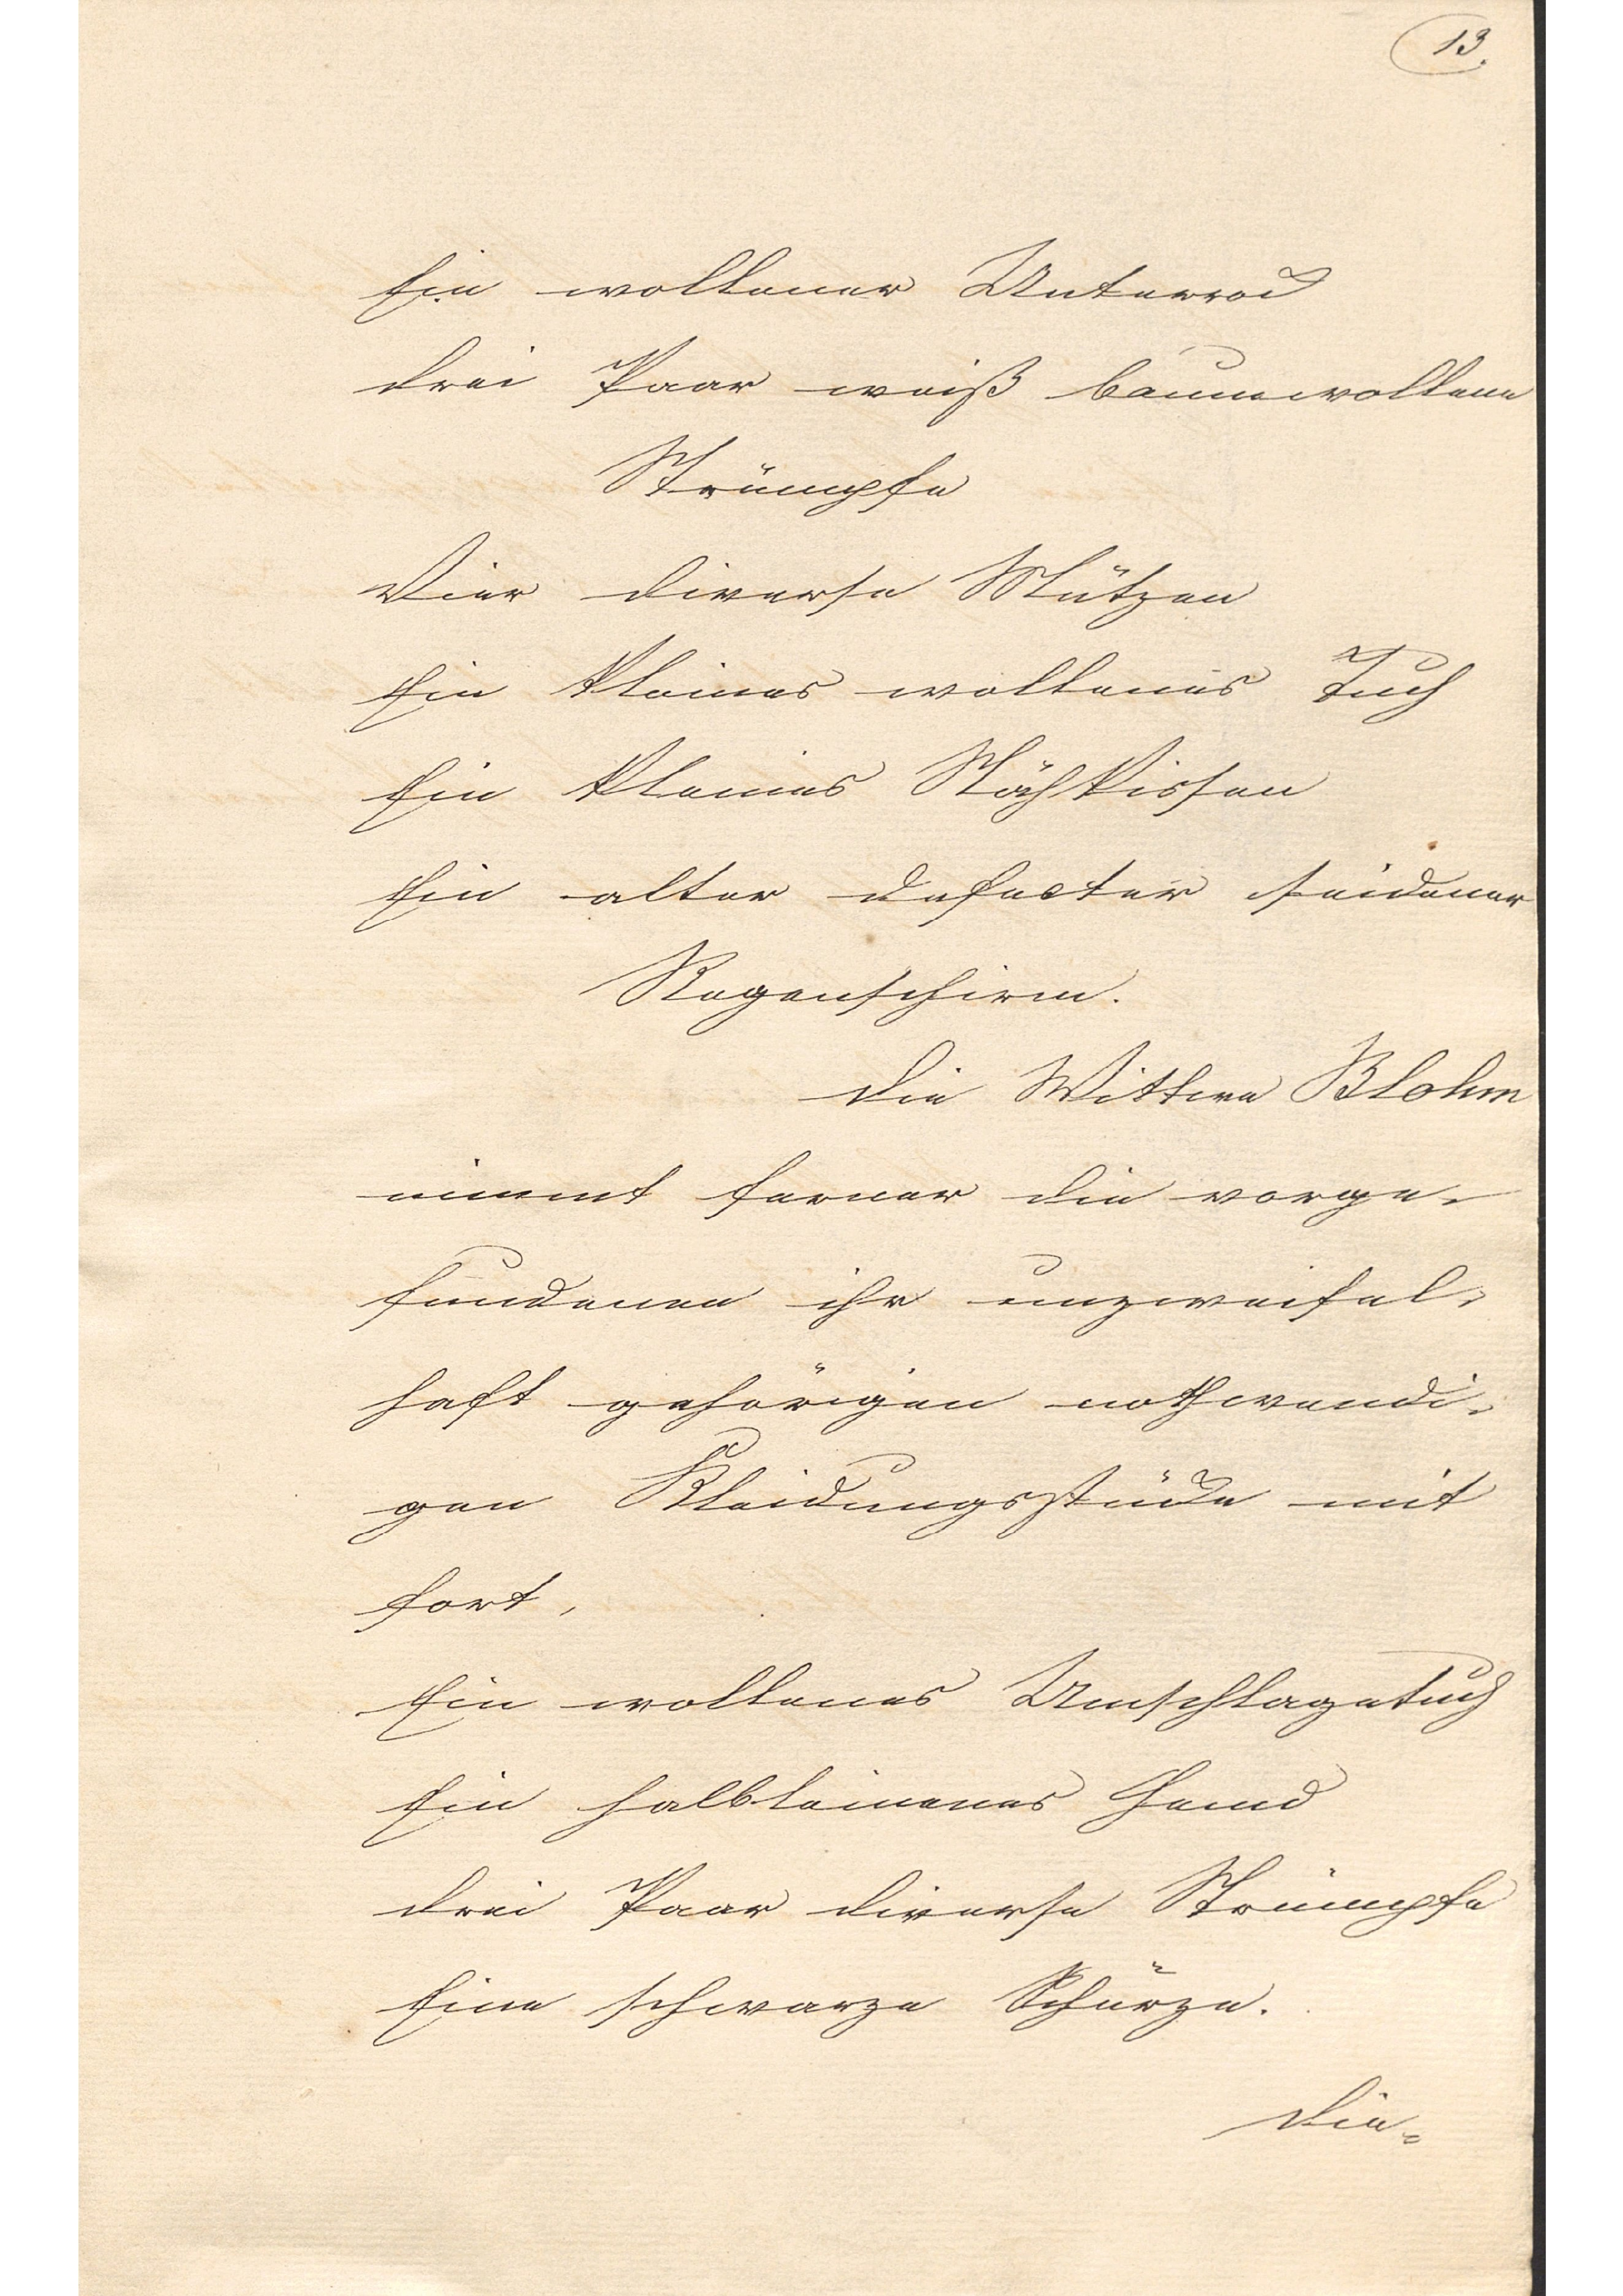 13.
Ein wollener Unterrock
drei Paar weiß baumwollene
Strümpfe
Vier diverse Mützen
Ein kleines wollenes Tuch
Ein kleines Nähkissen
Ein alter defecter seidener
Regenschirm.
Die Wittwe Blohm
nimmt ferner die vorge-
fundenen ihr unzweifel-
haft gehörigen nothwendi-
gen Kleidungsstücke mit
fort,
Ein wollenes Umschlagetuch
Ein halbleinenes Hemd
drei Paar diverse Strümpfe
Eine schwarze Schürze.
Die-